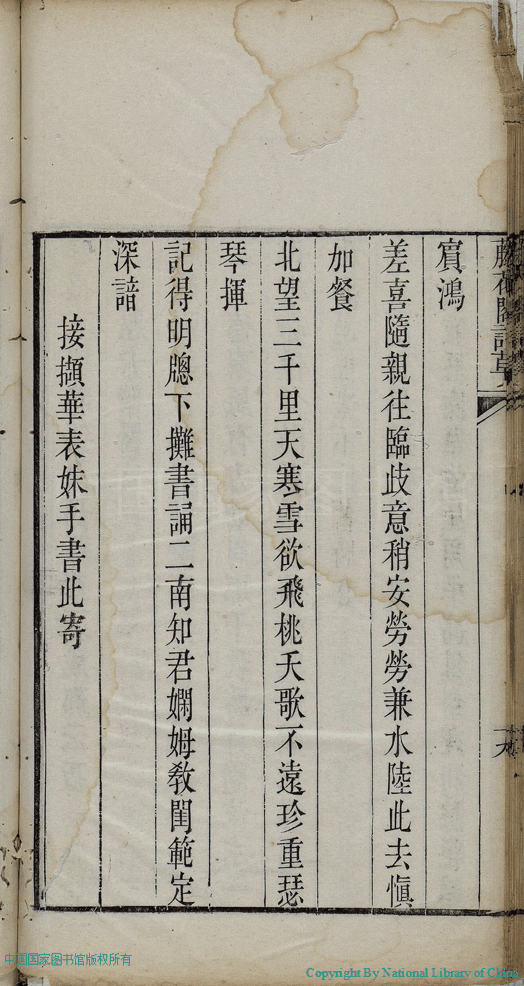 賔鴻
差喜隨親往臨歧意稍安勞勞兼水陸此去愼
加餐
北望三千里天寒雪欲飛桃夭歌不遠珍重瑟
琴揮
記得明牕下攤書誦二南知君嫻姆敎閨範定
深諳
接擷華表妹手書此寄
中国国家图书馆版权所有
Copyright By National Library of China